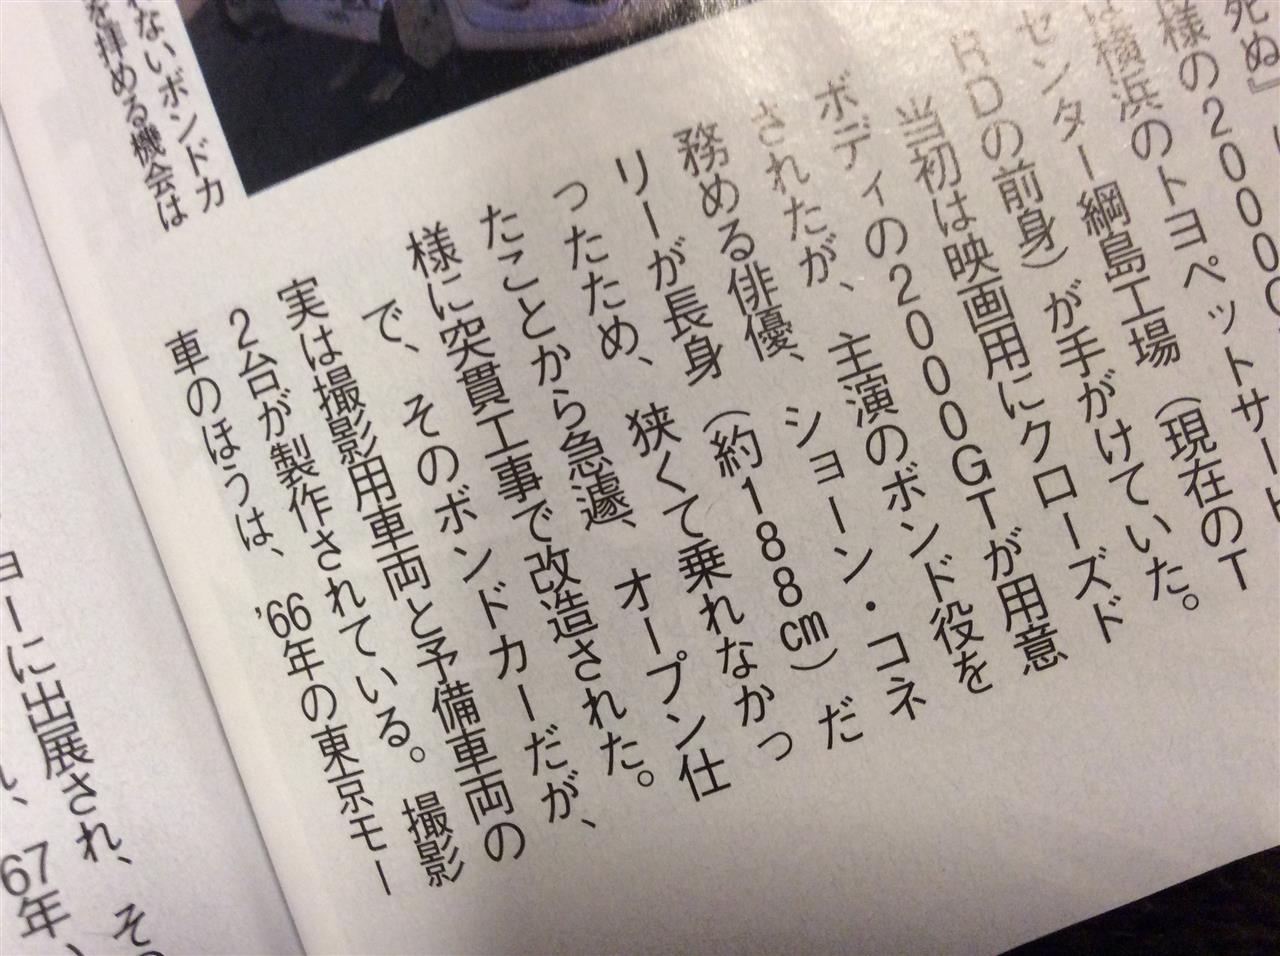 死ぬ』
様の2000G
は横浜のトヨペットサー
センター綱島工場（現在のT
RDの前身）が手がけていた。
当初は映画用にクローズド
ボディの2000GTが用意
されたが、主演のボンド役を
務める俳優、ショーン・コネ
リーが長身（約188㎝）だ
ったため、狭くて乗れなかっ
たことから急遽、オープン仕
様に突貫工事で改造された。
で、そのボンドカーだが、
実は撮影用車両と予備車両の
2台が製作されている。撮影
車のほうは、'66年の東京モー
ないボンドカ
を拝める機会は
ョーに出展され、その
67年、